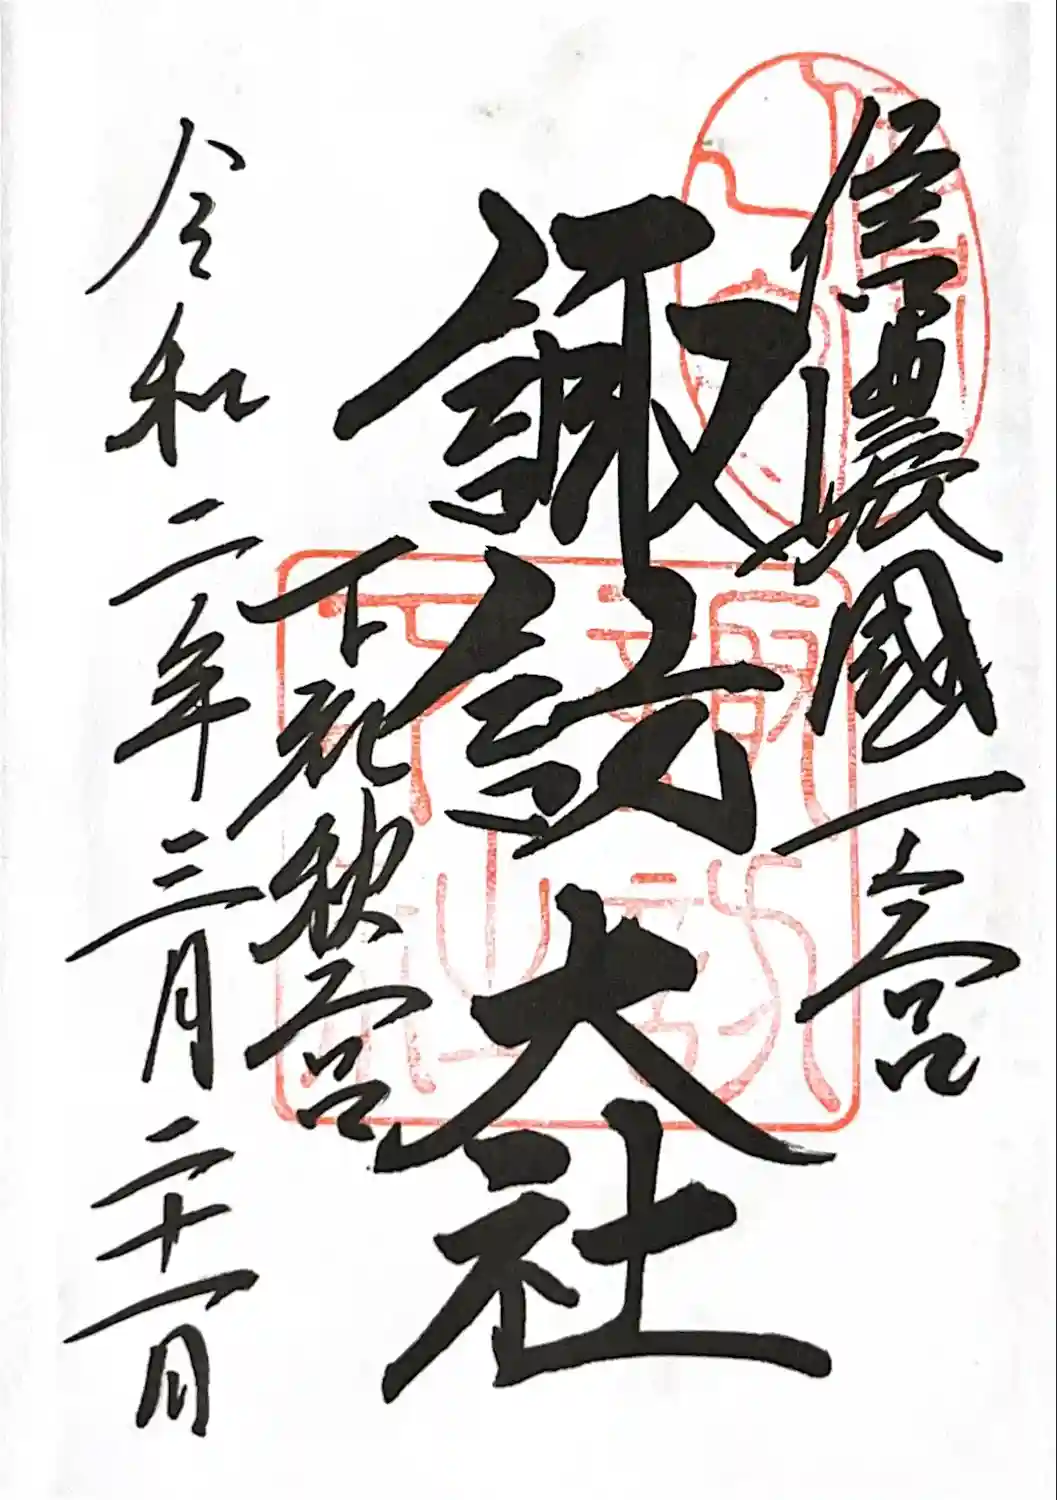 信濃國一宮
諏訪大社
下社秋宮
令和二年三月二十一日